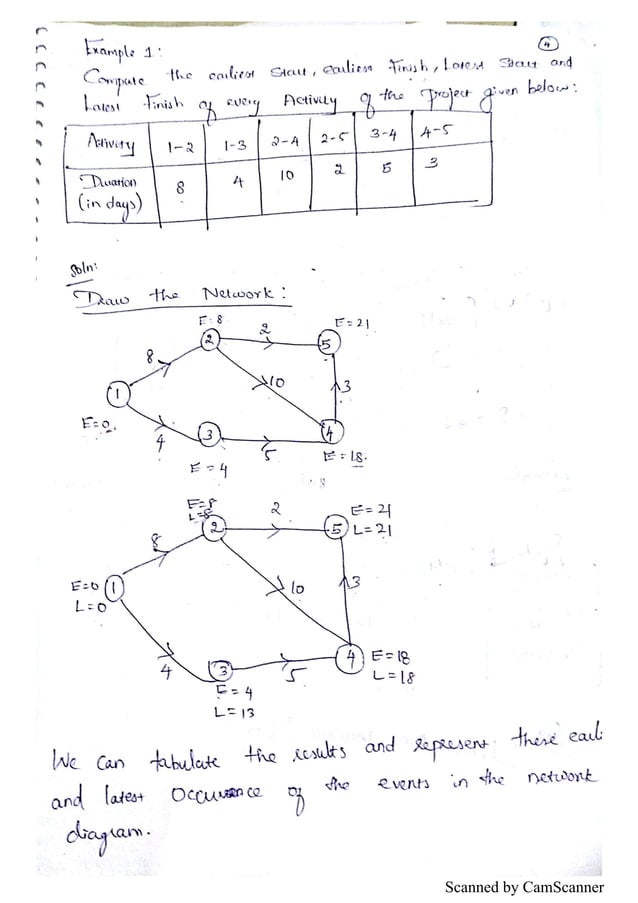 4
Example 1:
Compute the earliest Start, earliest Finish, Latest Start and
Latest Finish of every Activity of the Project given below:
Activity 1-2 1-3 2-4 2-5 3-4 4-5
Duration 8 4 10 2 5 3
(in days)
Soln:
Draw the Network:
E=8 2 E=21
8 2 5
1 10 3
E=0 4 3 5 4
E=4 E=18
E=8 2 E=21
L=8 2 5 L=21
8
E=0 1 10 3
L=0
4 3 5 4 E=18
E=4 L=18
L=13
We can tabulate the results and represent these earli
and latest Occurrence of the events in the network
diagram.
Scanned by CamScanner